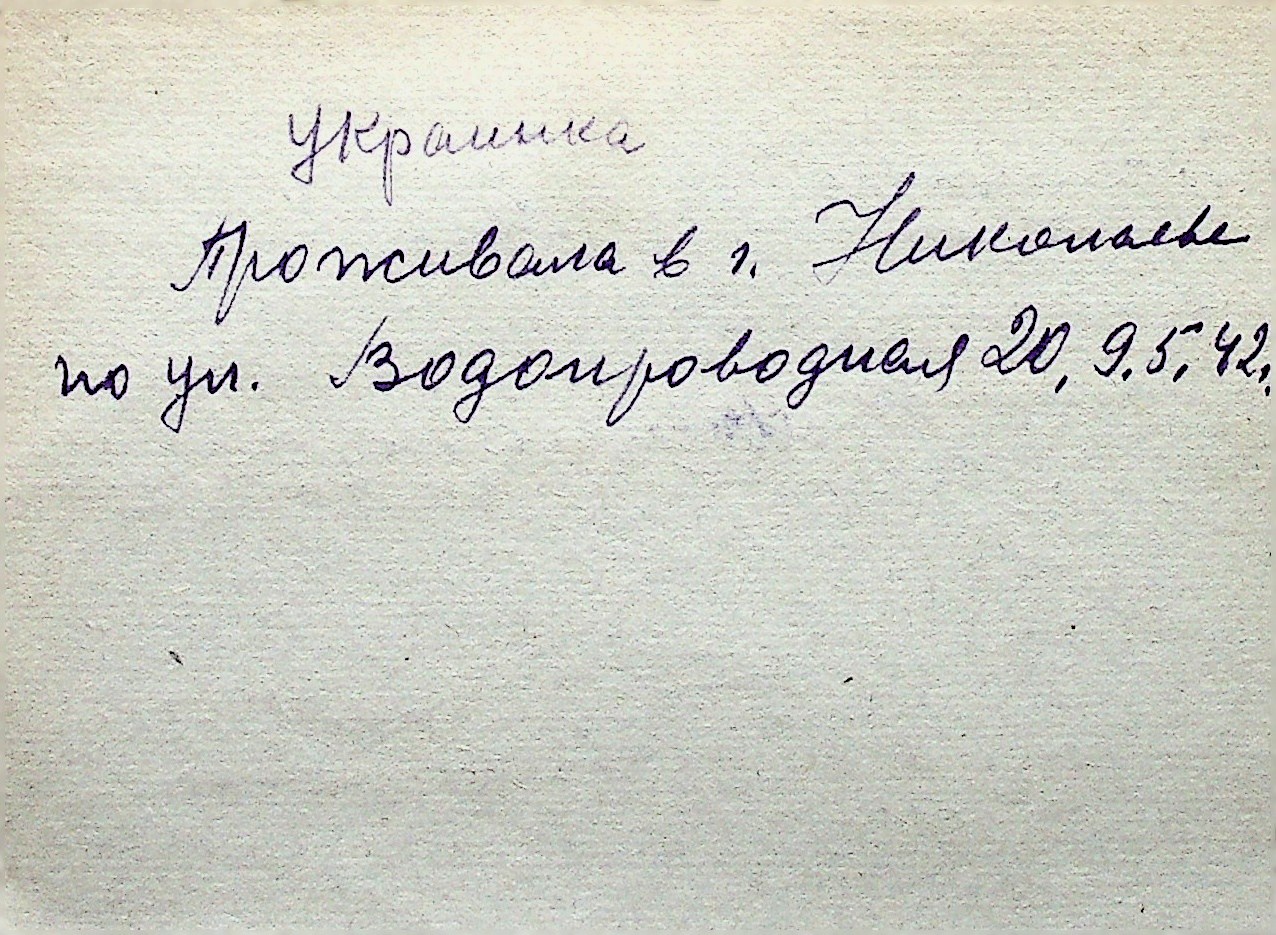 украинка
Проживала в г. Николаеве
по ул. Водопроводная 20, 9.5.42.